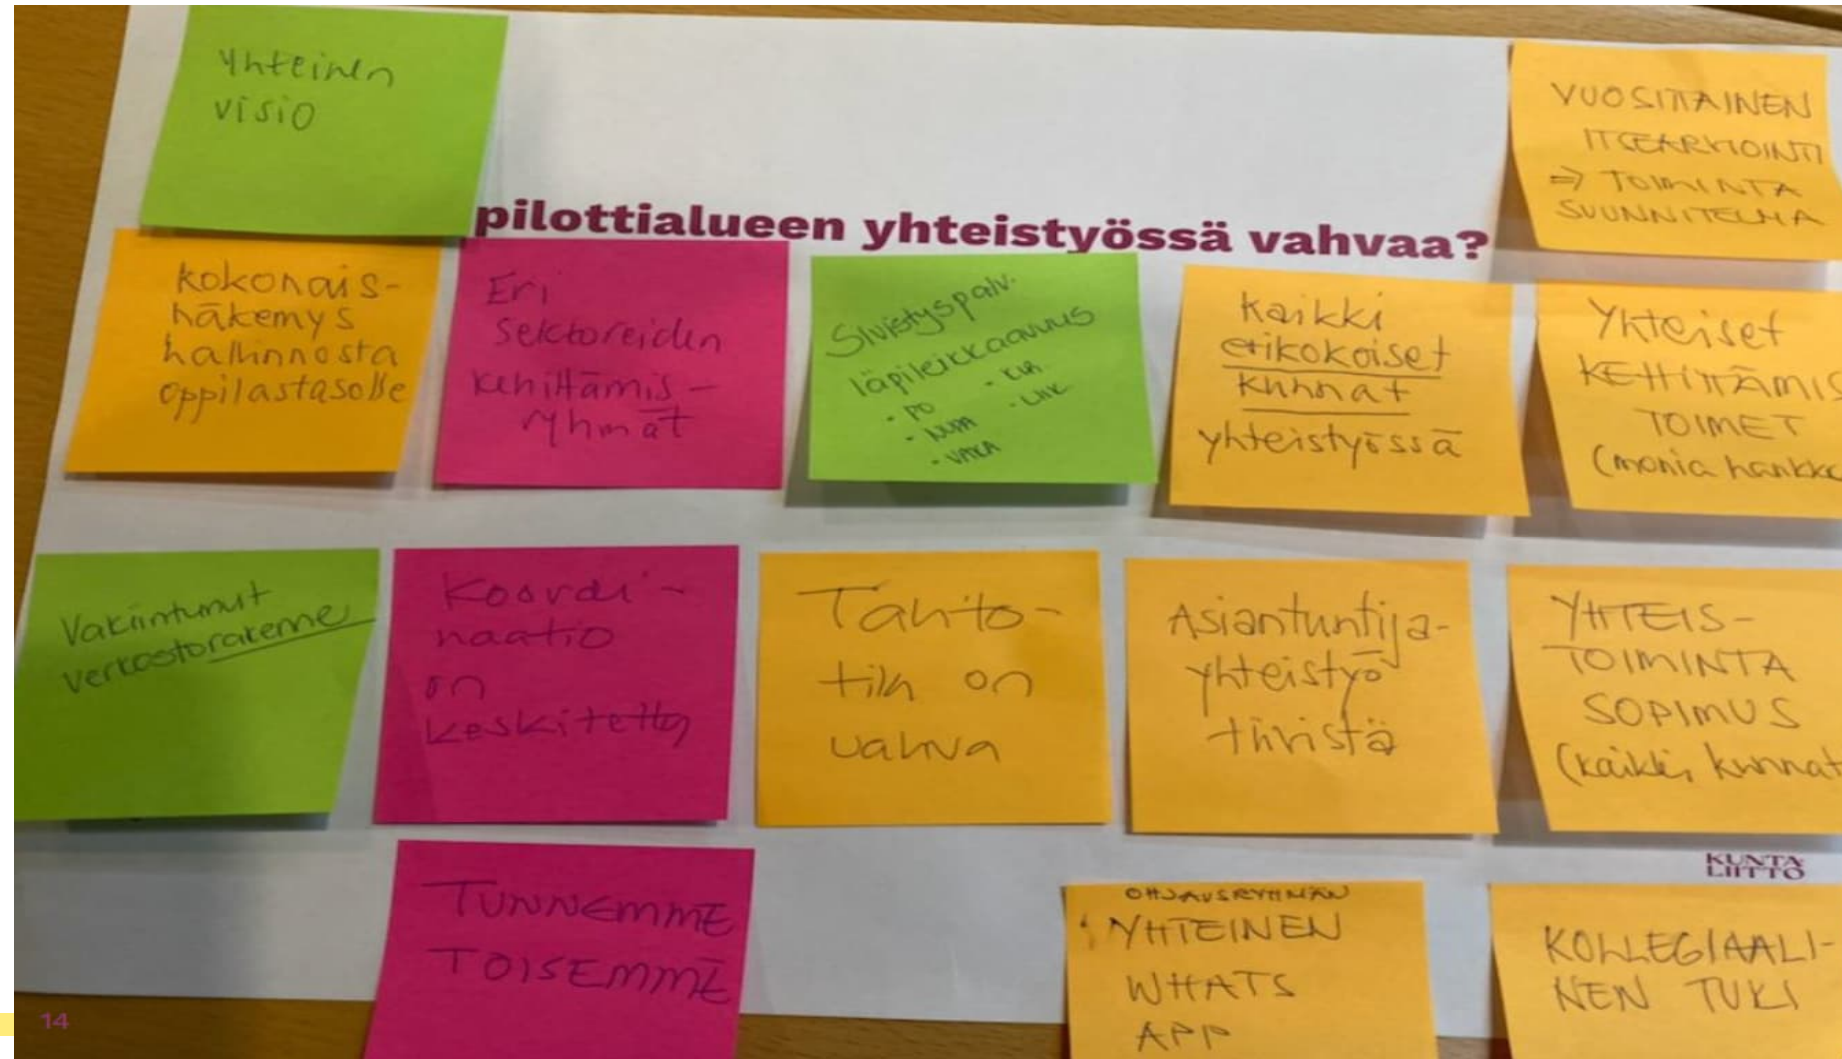 Yhteinen
visio
VUOSITTAINEN
ITSEARVIOINTI
=> TOIMINTA
SUUNNITELMA
pilottialueen yhteistyössä vahvaa?
Kokonais-
näkemys
hallinnosta
oppilastasolle
Eri
sektoreiden
kehittämis-
ryhmät
Sivistyspalv.
läpileikkaavuus
• PO
• NUPA
• VAKA
• KIR.
• LIIK.
Kaikki
erikokoiset
kunnat
yhteistyössä
Yhteiset
KEHITTÄMIS
TOIMET
(monia hankke
Vakiintunut
verkostorakenne
Koordi-
naatio
on
keskitetty
Tahto-
tila on
vahva
Asiantuntija-
yhteistyö
tiivistä
YHTEIS-
TOIMINTA
SOPIMUS
(kaikki kunnat
KUNTA
LIITTO
TUNNEMME
TOISEMME
OHJAUSRYHMÄN
YHTEINEN
WHATS
APP
KOLLEGIAALI-
NEN TUKI
14